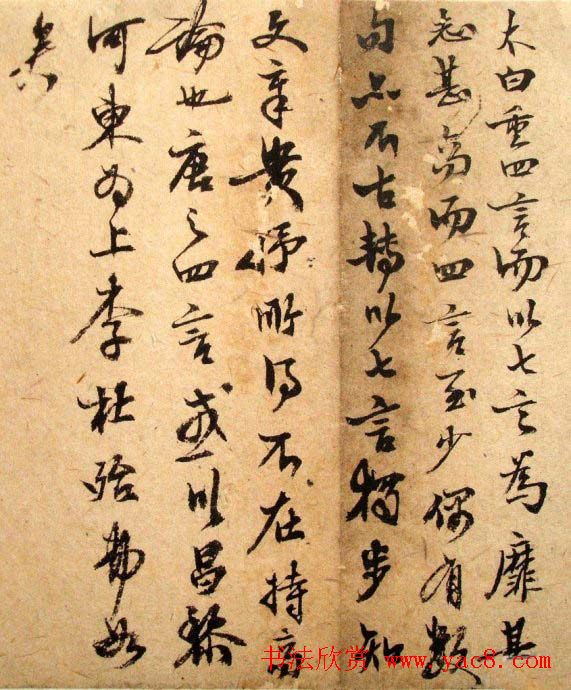 太白重四言而以七言為靡其
志甚高而四言至少偶有数
句亦不古转以七言獨步知
文章贵抒所得不在持高
論也唐之四言以昌黎
河東为上李杜殆如
矣
书法欣赏 www.yac8.com